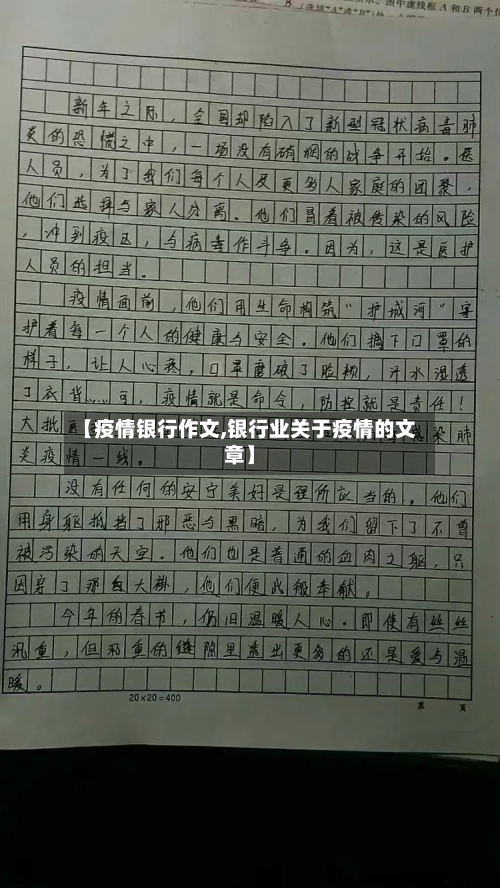 B
图中虚线框A和B两个
新年之际，全国却陷入了新型冠状病毒肺
炎的恐慌之中，一场没有硝烟的战争开始。医
人员，为了我们每个人及更多人家庭的团聚，
他们选择与家人分离。他们冒着被传染的风险
，冲到疫区，与病毒作斗争。因为，这是医护
人员的担当。
疫情面前，他们用生命构筑“护城河”守
护着每一个人的健康与安全。他们摘下口罩的
样子，让人心疼，口罩磨破了脸颊，汗水湿透
了衣背……可，疫情就是命令，防控就是责任！
大批医
感染肺
炎疫情一线。
【疫情银行作文,银行业关于疫情的文
章】
没有任何的安宁美好是理所应当的。他们
用身躯抵挡了邪恶与黑暗，为我们留下了不曾
被污染的天空。他们也是普通的血肉之躯，只
因穿了那白大褂，他们便此般奉献。
今年的春节，仍旧温暖人心。即使有丝丝
沉重，但邪重的缝隙里透出更多的还是爱与温
暖。
20×20=400
第 页